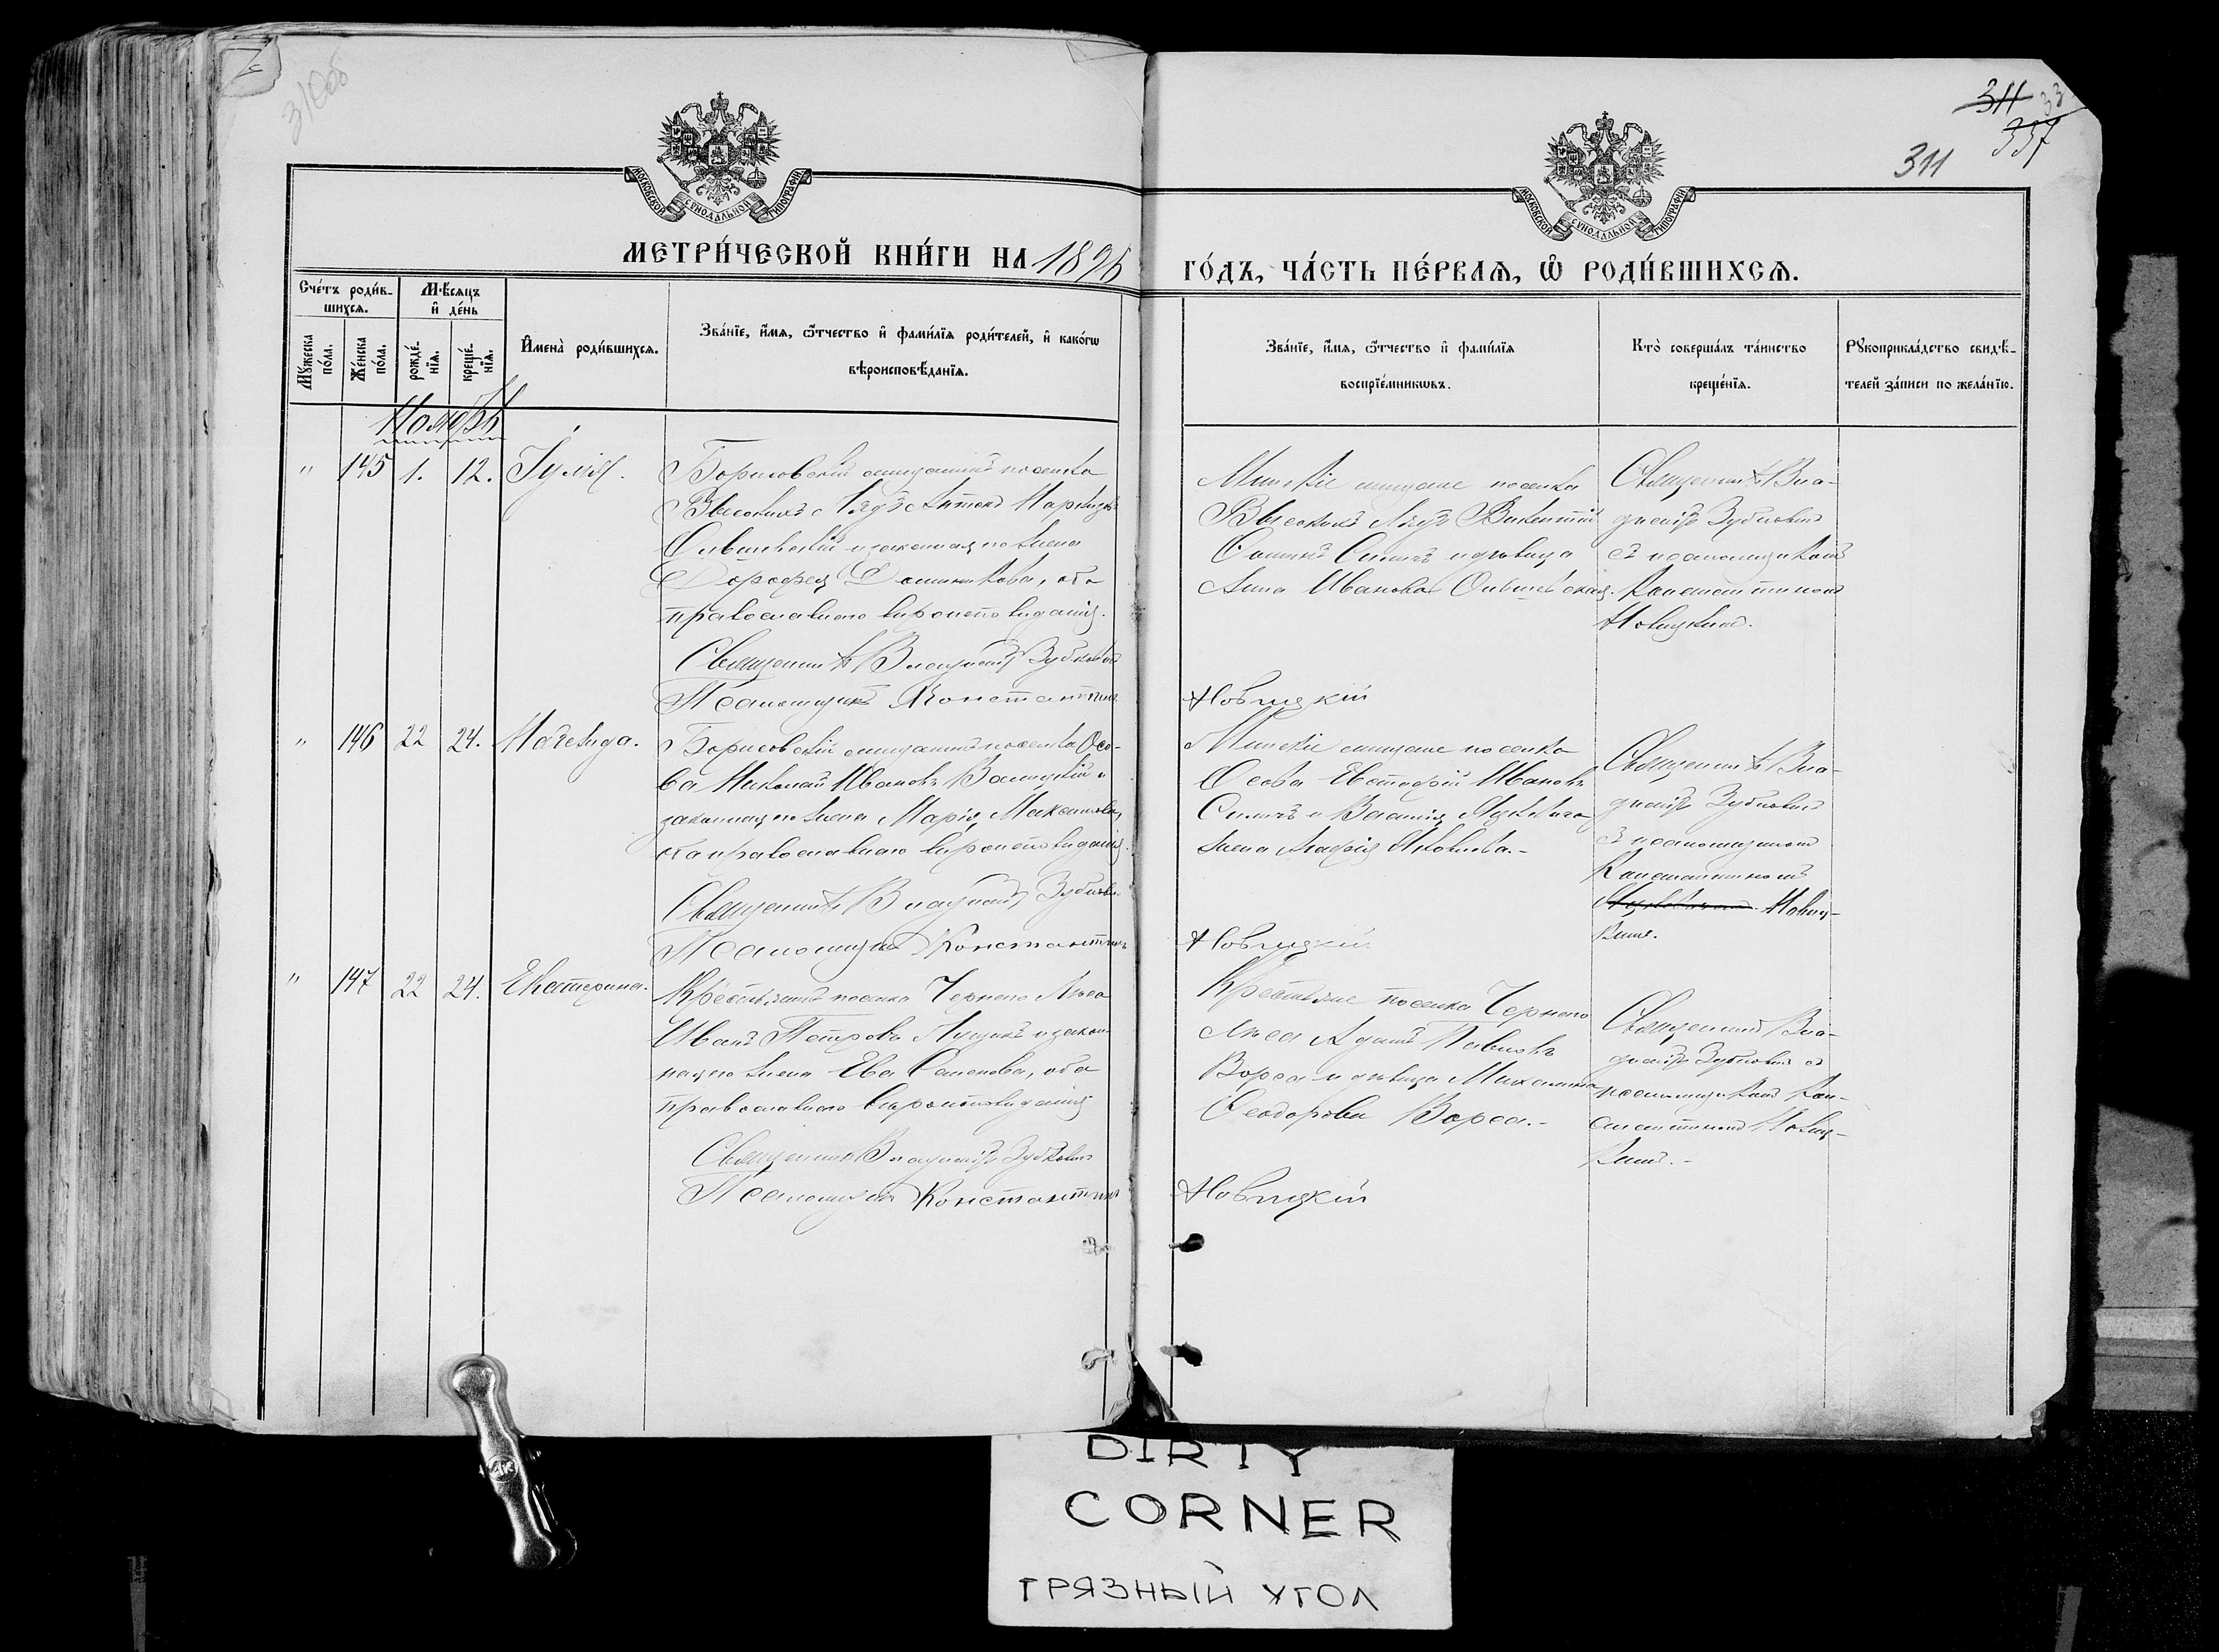 310об
311 33
337
311
МОСКОВСКОЙ СѴНОДАЛЬНОЙ ТИПОГРАФІИ
МОСКОВСКОЙ СѴНОДАЛЬНОЙ ТИПОГРАФІИ
МЕТРИ́ЧЕСКОЙ КНИ́ГИ НА 1896
ГО́ДЪ, ЧА́СТЬ ПЕ́РВАѦ, Ѡ҆ РОДИ́ВШИХСѦ.
Сче́тъ роди́в-
шихсѧ.
Мꙋ́жеска по́ла.
Же́нска по́ла.
Мѣ́сѧцъ
и҆ де́нь
рожде́-
нїѧ.
креще́-
нїѧ.
И҆мена̀ роди́вшихсѧ.
Зва́нїе, и҆́мѧ, ѻ҆́тчество и҆ фами́лїѧ роди́телей, и҆ како́гѡ
вѣроисповѣ́данїѧ.
Зва́нїе, и҆́мѧ, ѻ҆́тчество и҆ фами́лїѧ
воспрїе́мникѡвъ.
Кто̀ соверша́лъ та́инство
креще́нїѧ.
Рꙋкоприкла́дство свидѣ́-
телей за́писи по жела́нїю.
Ноябрь
" 145 1. 12. Іулія.
Борисовскій мещанинъ поселка
Высокихъ Лядъ Антонъ
и законная его жена
Дорофея Доминикова, оба
православнаго вѣроисповѣданія.
Священникъ Владиміръ Зубковичъ
Псаломщикъ Константинъ
Минскіе мещане поселка
Высокихъ Лядъ Викентій
и дѣвица
Анна Иванова
Священникъ Вла-
диміръ Зубковичъ
съ псаломщикомъ
Константиномъ
Новицкимъ.
Новицкій
" 146 22 24.
Борисовскій мещанинъ поселка Осо-
ва Николай Ивановъ и
законная его жена Марія Максимова,
оба православнаго вѣроисповѣданія.
Священникъ Владиміръ Зубкович
Псаломщикъ Константинъ
Минскіе мещане поселка
Осова Евстафій Ивановъ
и
жена
Священникъ Вла-
диміръ Зубковичъ
съ псаломщикомъ
Константиномъ
Новиц-
кимъ.
Новицкій
" 147 22 24. Екатерина.
Крестьянинъ поселка Чернаго Лѣса
Иванъ Петровъ и закон-
ная его жена Ева Семенова, оба
православнаго вѣроисповѣданія
Священникъ Владиміръ Зубковичъ
Псаломщикъ Константинъ
Крестьяне поселка Чернаго
Лѣса Адамъ Павловъ
Ворса и дѣвица Михалина
Ѳеодорова Ворса.-
Священникъ Вла-
диміръ Зубковичъ съ
псаломщикомъ Кон-
стантиномъ Новиц-
кимъ.-
Новицкій
DIRTY
CORNER
ГРЯЗНЫЙ УГОЛ